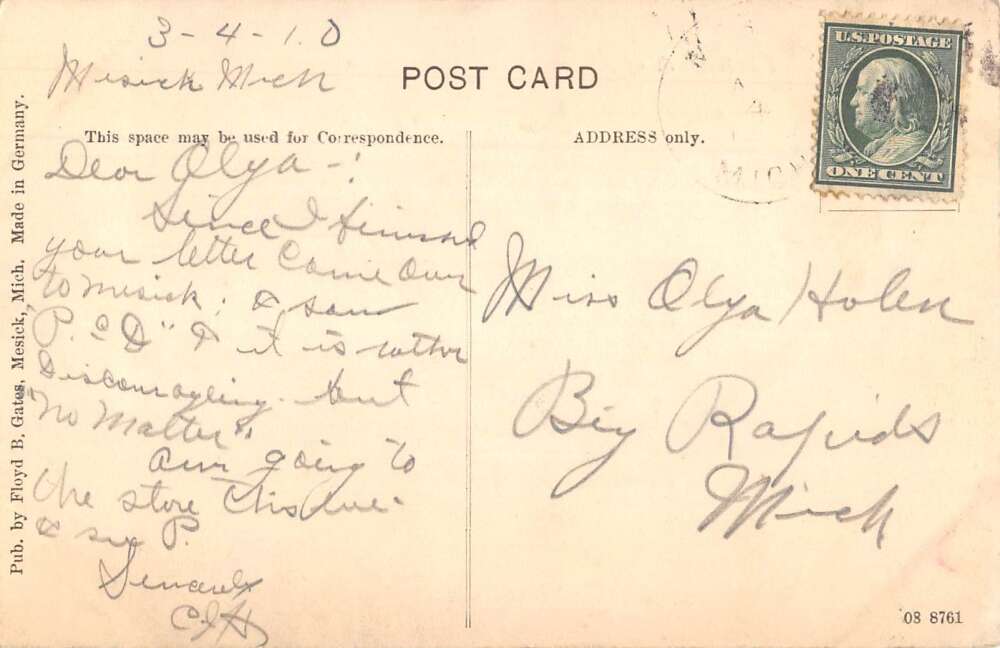 3-4-10
Mesick Mich
POST CARD
U.S. POSTAGE
ONE CENT
This space may be used for Correspondence.
ADDRESS only.
Dear Olga -:
Since I finished
your letter Came over
to Mesick; & saw
P. & D" & it is rather
Discouraging but
"No Matter"
Am going to
the store this eve-
& see P.
Sincerely
C.I.H.
Miss Olga Holen
Big Rapids
Mich
MICH
Pub. by Floyd B. Gates, Mesick, Mich. Made in Germany.
08 8761